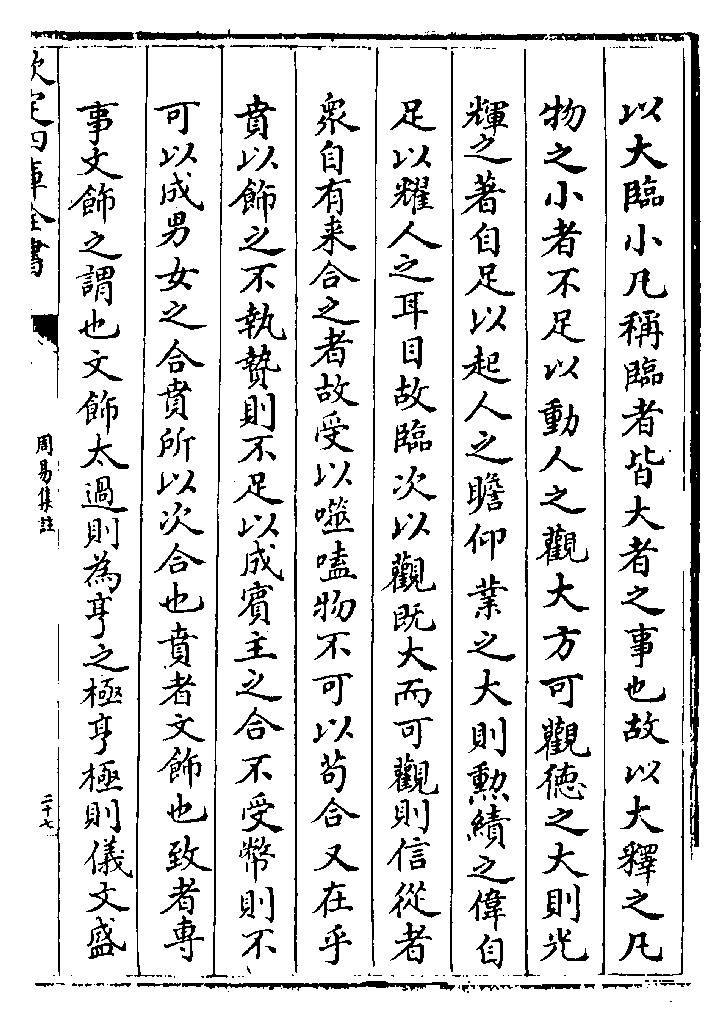 以大臨小凡稱臨者皆大者之事也故以大釋之凡
物之小者不足以動人之觀大方可觀德之大則光
輝之著自足以起人之瞻仰業之大則勲績之偉自
足以耀人之耳目故臨次以觀既大而可觀則信從者
衆自有来合之者故受以噬嗑物不可以苟合又在乎
賁以飾之不執贄則不足以成賓主之合不受幣則不
可以成男女之合賁所以次合也賁者文飾也致者專
事文飾之謂也文飾太過則為亨之極亨極則儀文盛
欽定四庫全書
周易集註
二十七